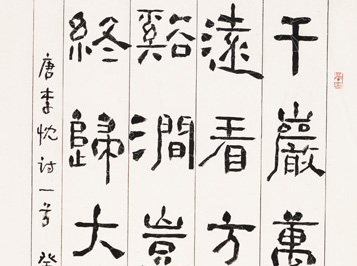 千巖萬
遠看方
谿澗豈
終歸大
唐李忱诗一首 癸